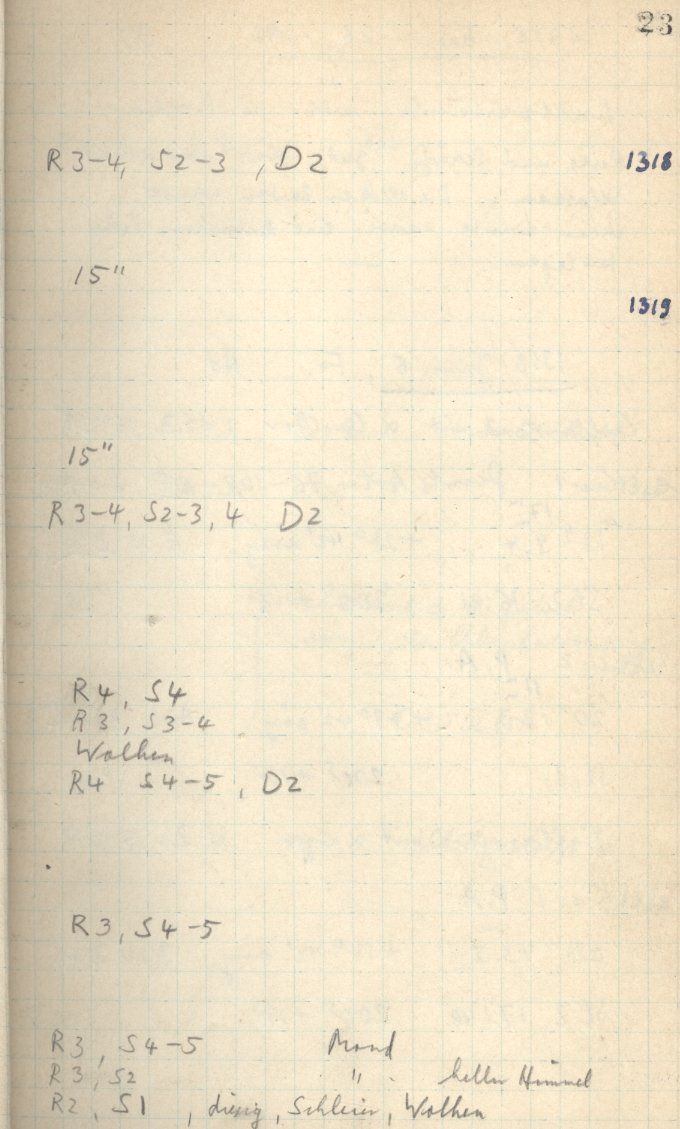 23
R3-4, S2-3, D2 1318
15"
1319
15"
R3-4, S2-3, 4 D2
R4, S4
R3, S3-4
Wolken
R4 S4-5, D2
R3, S4-5
R3, S4-5 Mond
R3, S2 " heller Himmel
R2, S1, diesig, Schleier, Wolken